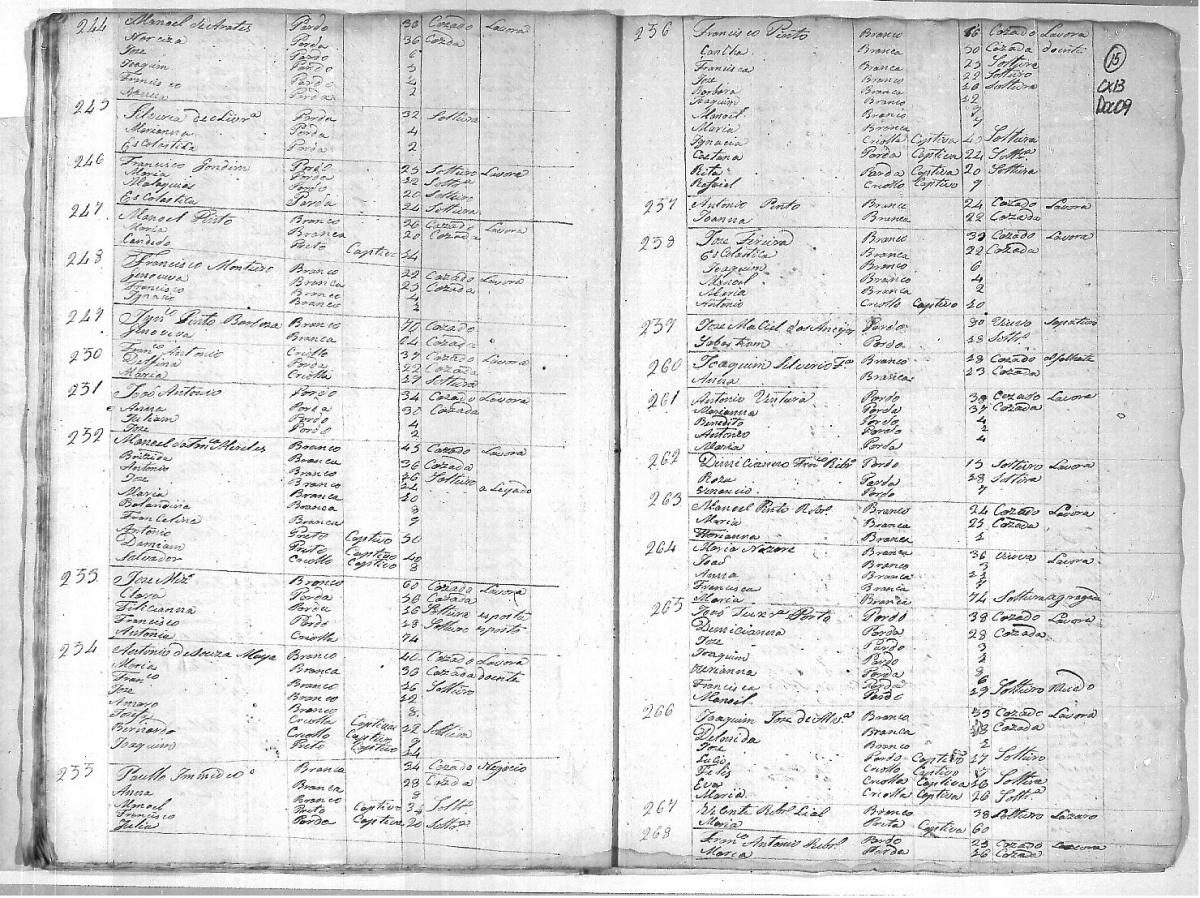 244 Manoel de Pardo 30 Cazado Lavora
Narciza Parda 36 Cazada
Joze Pardo 6
Joaquim Pardo 5
Francisco Pardo
Parda 2
245 Silveria de Parda 32 Solteira
Marianna Parda 4
Escolastica Parda 2
246 Francisco Pardo 25 Solteiro Lavora
Maria Parda 22 Soltrª
Malaquias Pardo 20 Solteiro
Escolastica Parda 24 Solteira
247 Manoel Pinto Branco 26 Cazado Lavora
Maria Branca 20 Cazada
Candido Preto Captivo 14
248 Francisco Monteiro Branco 22 Cazado Lavora
Genoveva Branca 25 Cazada
Francisco Branco 4
Ignacio Branco 2
249 Pinto Barboza Branco 70 Cazado
Genoveva Branca 64 Cazada
250 Franco Antonio Criollo 37 Cazado Lavora
Delfina Parda 22 Cazada
Maria Criolla 19 Solteira
251 João Antonio Pardo 34 Cazado Lavora
Anna Parda 30 Cazada
Juliam Pardo 4
Joze Pardo 2
252 Manoel Branco 45 Cazado Lavora
Brizida Branca 36 Cazada
Antonio Branco 16 Solteiro
Joze Branco a Leyado
Maria Branca 10
Bolandina Branca 8
Francelina Branca 9
Antonio Preto Captivo 50
Damiam Preto Captivo 40
Salvador Criollo Captivo 8
253 Joze Branco 60 Cazado Lavora
Clara Parda 50 Cazada
Filicianna Parda 16 Solteira esposta
Francisco Pardo 18 Solteiro esposto
Antonia Criolla 74
254 Antonio de Souza Maya Branco 40 Cazado Lavora
Maria Branca 36 Cazada doente
Franco Branco 16 Solteiro
Joze Branco 12
Amaro Branco 8
Criolla Captiva 22 Solteira
Bernardo Criollo Captivo 9
Joaquim Preto Captivo 14
255 Paullo Branca 34 Cazado Negocio
Anna Branca 28 Cazada
Manoel Branco 8
Francisco Preto Captivo 34 Soltrº
Julia Parda Captiva 20 Soltrª
15
CX13
Doc09
256 Francisco Pinto Branco 66 Cazado Lavora
Branca 50 Cazada doente
Francisca Branca 25 Solteira
Joze Branco 22 Solteiro
Barbora Branca 16 Solteira
Joaquim Branco 12
Manoel Branco 9
Maria Branca 7
Ignacia Criolla Captiva 40 Solteira
Caetana Parda Captiva 22 Soltrª
Rita Parda Captiva 20 Solteira
Rafaiel Criollo Captivo 9
257 Antonio Pinto Branco 24 Cazado Lavora
Joanna Branca 22 Cazada
258 Joze Branco 39 Cazado Lavora
Escolastica Branca 22 Cazada
Joaquim Branco 6
Manoel Branco 4
Maria Branca 2
Antonio Criollo Captivo 10
259 Joze Maciel dos Anejos Pardo 50 Viuvo Sapateiro
Sabastiam Pardo 18 Soltrº
260 Joaquim Silverio Branco 28 Cazado alfaihate
Anna Branca 23 Cazada
261 Antonio Ventura Pardo 38 Cazado Lavora
Marianna Parda 37 Cazada
Benedito Pardo 4
Antonio Pardo 2
Maria Parda 4
262 Dimicianno Pardo 15 Solteiro Lavora
Roza Parda 18 Solteira
Venancio Pardo 7
263 Manoel Pinto Branco 24 Cazado Lavora
Maria Branca 25 Cazada
Florianna Branca 1
264 Maria Nazare Branca 36 Viuva Lavora
João Branco 3
Anna Branca
Francisca Branca
Maria Branca 74 Solteira agregada
265 João Pardo 38 Cazado Lavora
Dimicianna Parda 28 Cazada
Joze Pardo 3
Joaquim Pardo 1
Marianna Parda 8
Francisca Parda 6
Manoel Pardo 19 Solteiro Mudo
266 Joaquim Joze de Branco 33 Cazado Lavora
Branca Cazada
Joze Branco 2
Pardo Captivo 17 Solteiro
Criollo Captivo 7
Eva Criolla Captiva 16 Solteira
Maria Criolla Captiva 26 Soltrª
267 Vicente Lial Branco 38 Solteiro Lazaro
Maria Preta Captiva 60
268 Franco Antonio Pardo 25 Cazado Lavora
Maria Parda 26 Cazada